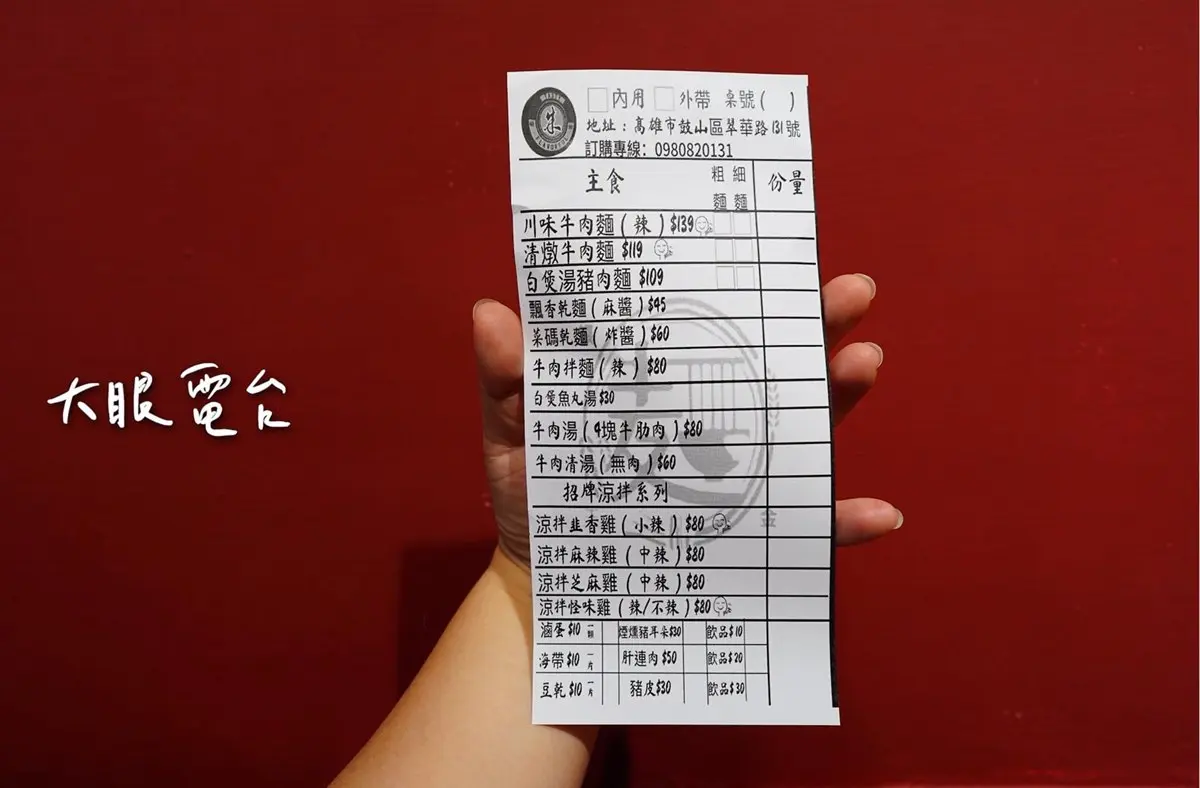 □內用 □外帶 桌號( )
地址：高雄市鼓山區翠華路131號
訂購專線: 0980820131
主食 粗麵 細麵 份量
川味牛肉麵(辣)$139
清燉牛肉麵 $119
白煲湯豬肉麵 $109
飄香乾麵(麻醬)$45
菜碼乾麵(炸醬)$60
牛肉拌麵(辣)$80
白煲魚丸湯$30
牛肉湯(4塊牛肋肉)$80
牛肉清湯(無肉)$60
招牌涼拌系列
涼拌韭香雞(小辣)$80
涼拌麻辣雞(中辣)$80
涼拌芝麻雞(中辣)$80
涼拌怪味雞(辣/不辣)$80
滷蛋$10一顆 煙燻豬耳朵$30 飲品$10
海帶$10一片 肝連肉$50 飲品$20
豆乾$10一片 豬皮$30 飲品$30
大眼電台